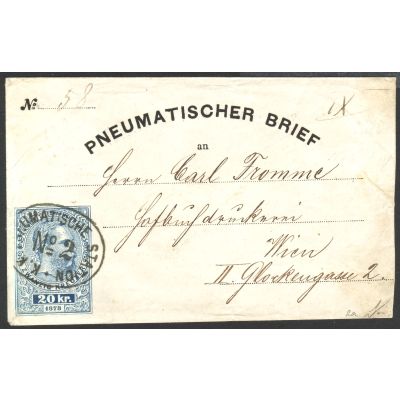 No. 58
IX
PNEUMATISCHER BRIEF
an
Herrn Carl Fromme
Hofbuchdruckerei
Wien
II Glockengasse 2.
K.K. PNEUMATISCHE STATION
No 2
20 kr.
1873